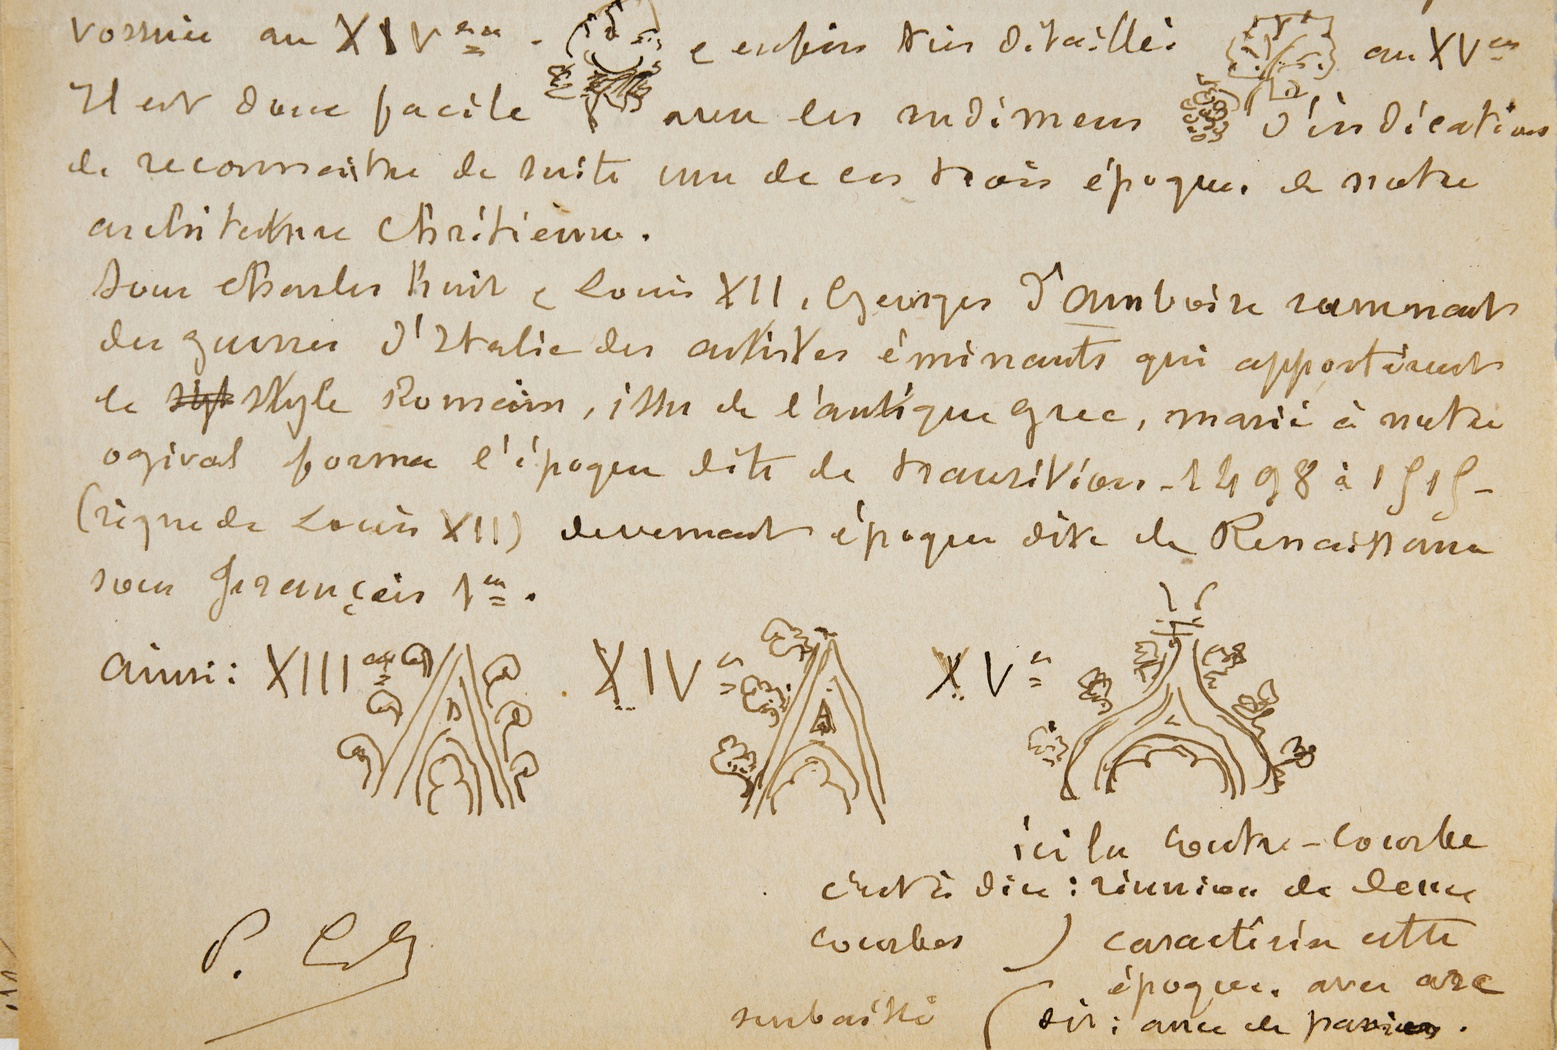 au XIVème - e enfin très détaillé au XVème
Il est donc facile avec les rudimens d'indications
de reconnaitre de suite une de ces trois époques de notre
architecture Chrétienne.
Sous Charles huit e Louis XII, Georges d'amboise ramenant
des guerres d'Italie des artistes éminants qui apportèrent
le style Romain, issu de l'antique grec, marié à notre
ogival forma l'époque dite de transition - 1498 à 1515 -
(règne de Louis XII) devenant époque dite de Renaissance
sous François 1er.
ainsi: XIIIème XIVe XVe
ici la contre-courbe
c'est à dire : réunion de deux
courbes ) caractérise cette
époque. avec arc
surbaissé ( dit : anse de panier.
P.